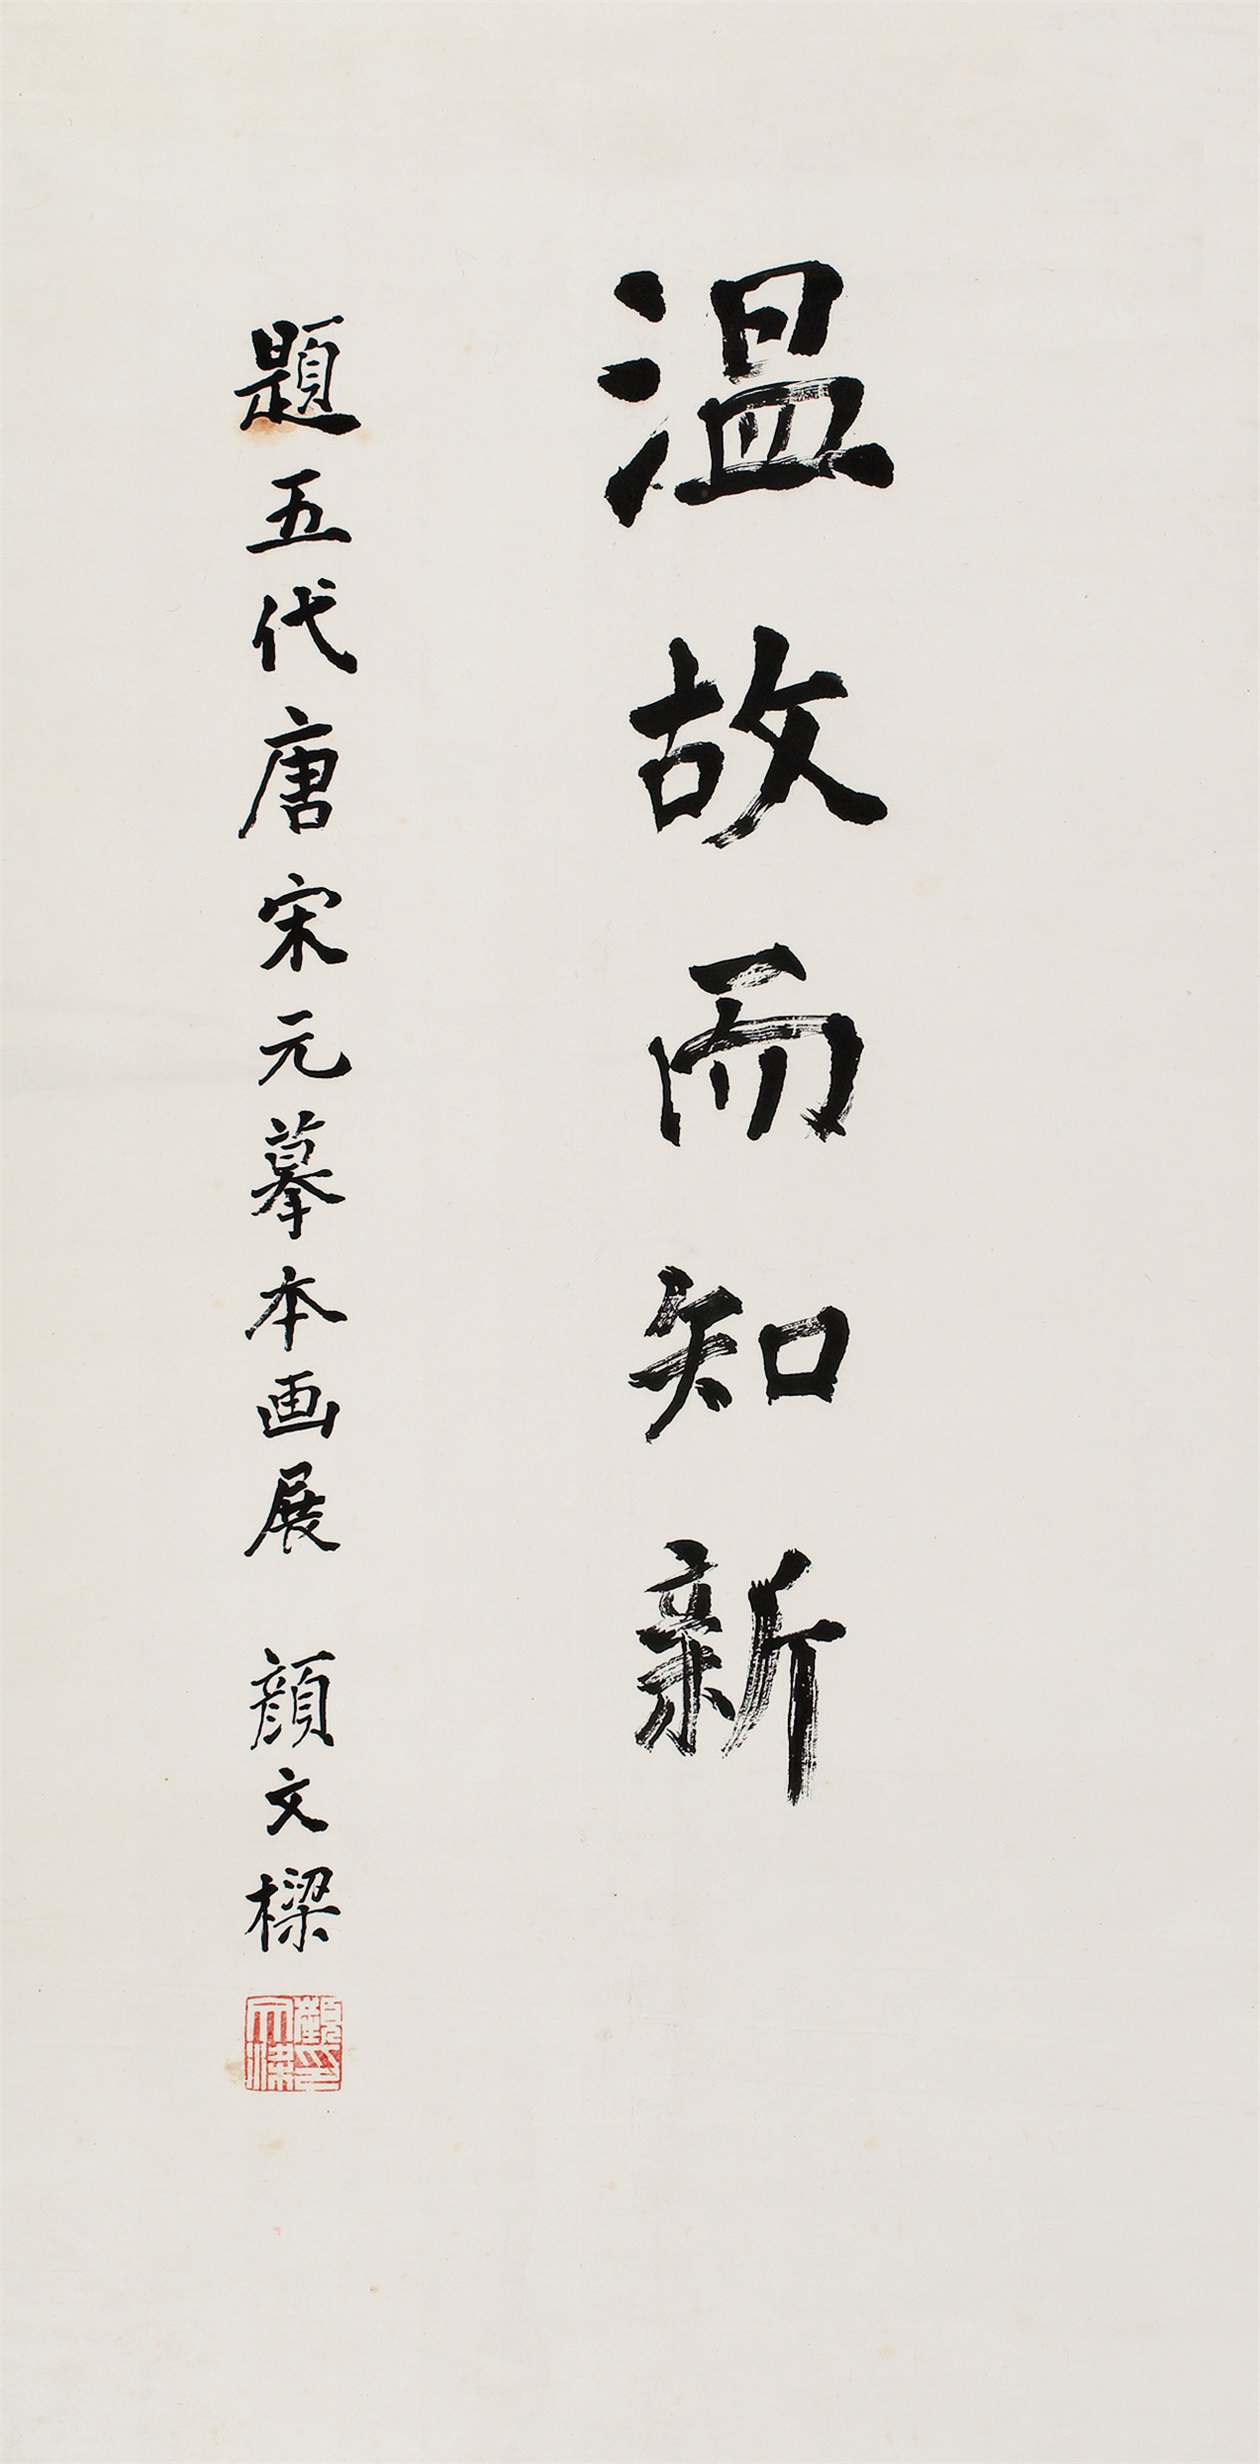 温故而知新
題五代唐宋元摹本画展 顔文樑